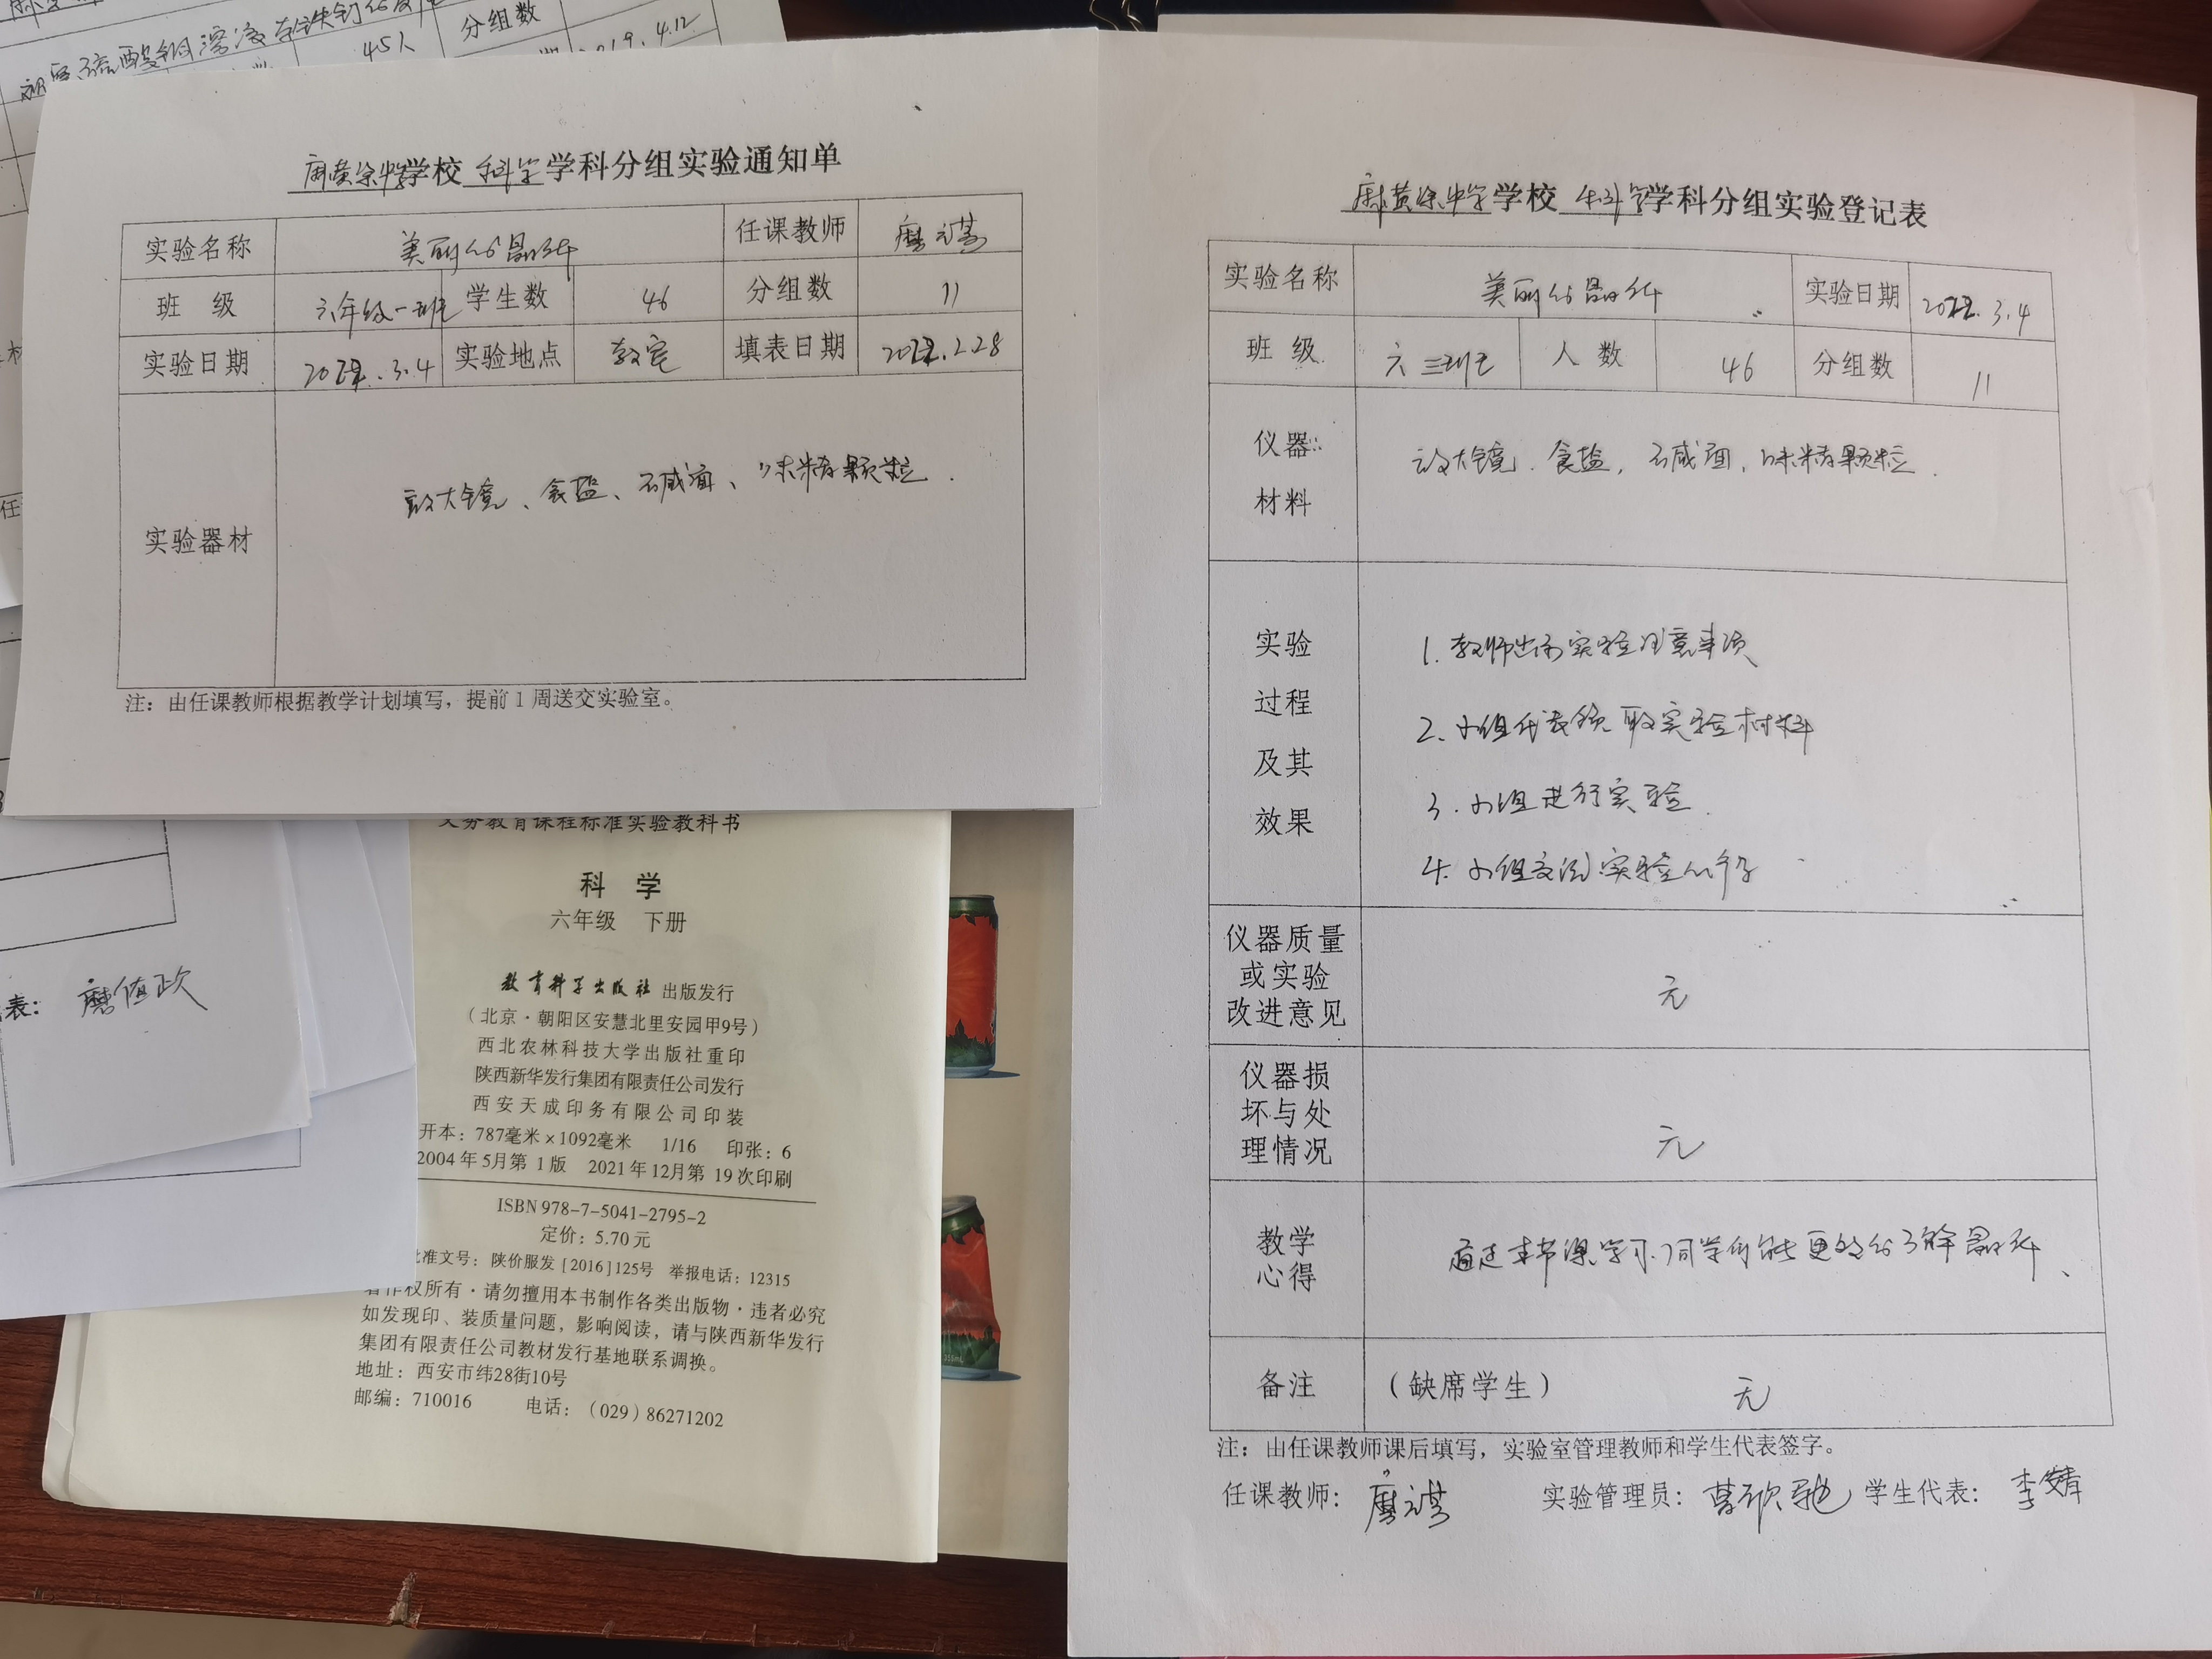 45人
分组数
2019.4.12
麻黄梁中学学校 科学学科分组实验通知单
实验名称 美丽的晶体 任课教师
班 级 六年级一班 学生数 46 分组数 11
实验日期 2022.3.4 实验地点 教室 填表日期 2022.2.28
实验器材 放大镜、食盐、碱面、味精颗粒.
注：由任课教师根据教学计划填写，提前1周送交实验室。
表：
义务教育课程标准实验教科书
科 学
六年级 下册
教育科学出版社 出版发行
（北京·朝阳区安慧北里安园甲9号）
西北农林科技大学出版社重印
陕西新华发行集团有限责任公司发行
西安天成印务有限公司印装
开本：787毫米×1092毫米 1/16 印张：6
2004年5月第1版 2021年12月第19次印刷
ISBN 978-7-5041-2795-2
定价：5.70元
批准文号：陕价服发[2016]125号 举报电话：12315
著作权所有·请勿擅用本书制作各类出版物·违者必究
如发现印、装质量问题，影响阅读，请与陕西新华发行
集团有限责任公司教材发行基地联系调换。
地址：西安市纬28街10号
邮编：710016 电话：（029）86271202
麻黄梁中学学校 科学学科分组实验登记表
实验名称 美丽的晶体 实验日期 2022.3.4
班 级 六三班 人 数 46 分组数 11
仪器
材料
放大镜.食盐,碱面,味精颗粒.
实验
过程
及其
效果
1.教师出示实验注意事项
2、小组代表领取实验材料
3.小组进行实验.
4.小组交流实验心得
仪器质量
或实验
改进意见
无
仪器损
坏与处
理情况
无
教学
心得
通过本节课学习.同学们能更好的了解晶体、
备注 （缺席学生） 无
注：由任课教师课后填写，实验室管理教师和学生代表签字。
任课教师： 实验管理员： 学生代表：李婧